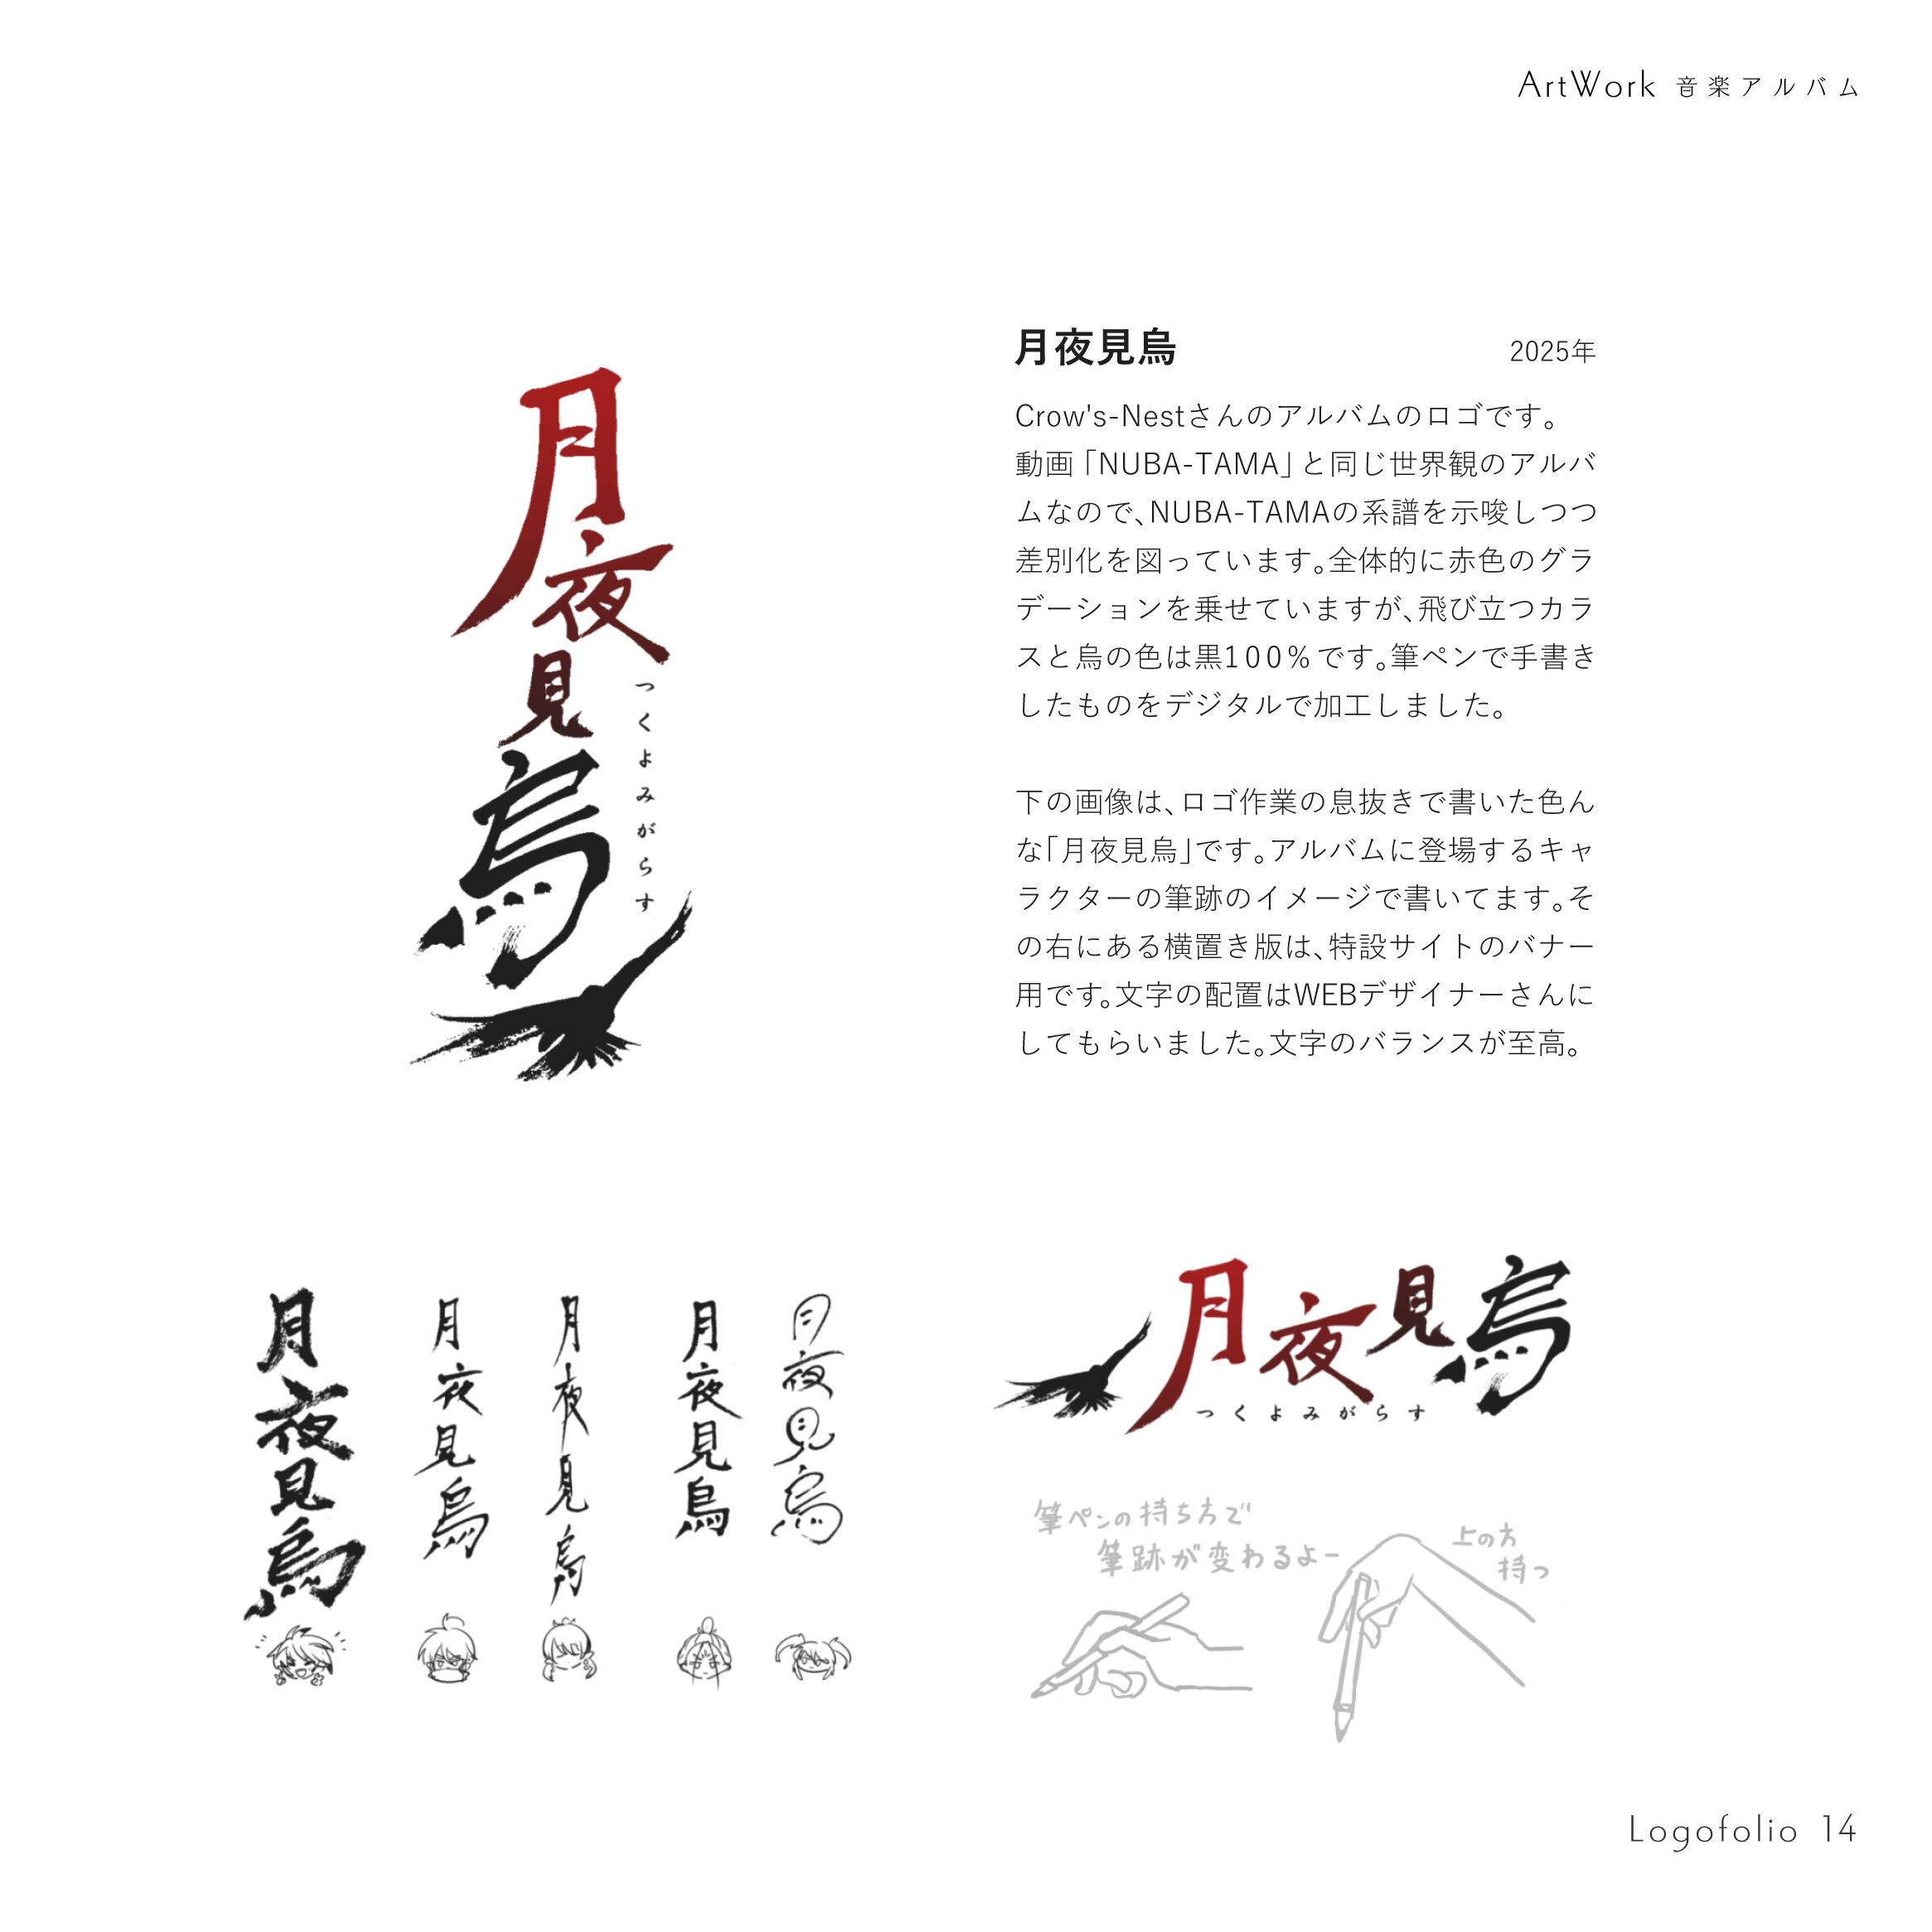 ArtWork 音楽アルバム
月夜見烏
つくよみがらす
月夜見烏
2025年
Crow's-Nestさんのアルバムのロゴです。
動画「NUBA-TAMA」と同じ世界観のアルバ
ムなので、NUBA-TAMAの系譜を示唆しつつ
差別化を図っています。全体的に赤色のグラ
デーションを乗せていますが、飛び立つカラ
スと烏の色は黒100％です。筆ペンで手書き
したものをデジタルで加工しました。
下の画像は、ロゴ作業の息抜きで書いた色ん
な「月夜見烏」です。アルバムに登場するキャ
ラクターの筆跡のイメージで書いてます。そ
の右にある横置き版は、特設サイトのバナー
用です。文字の配置はWEBデザイナーさんに
してもらいました。文字のバランスが至高。
月夜見烏
月夜見烏
月夜見烏
月夜見烏
月夜見烏
月夜見烏
つくよみがらす
筆ペンの持ち方で
筆跡が変わるよー
上の方
持つ
Logofolio 14